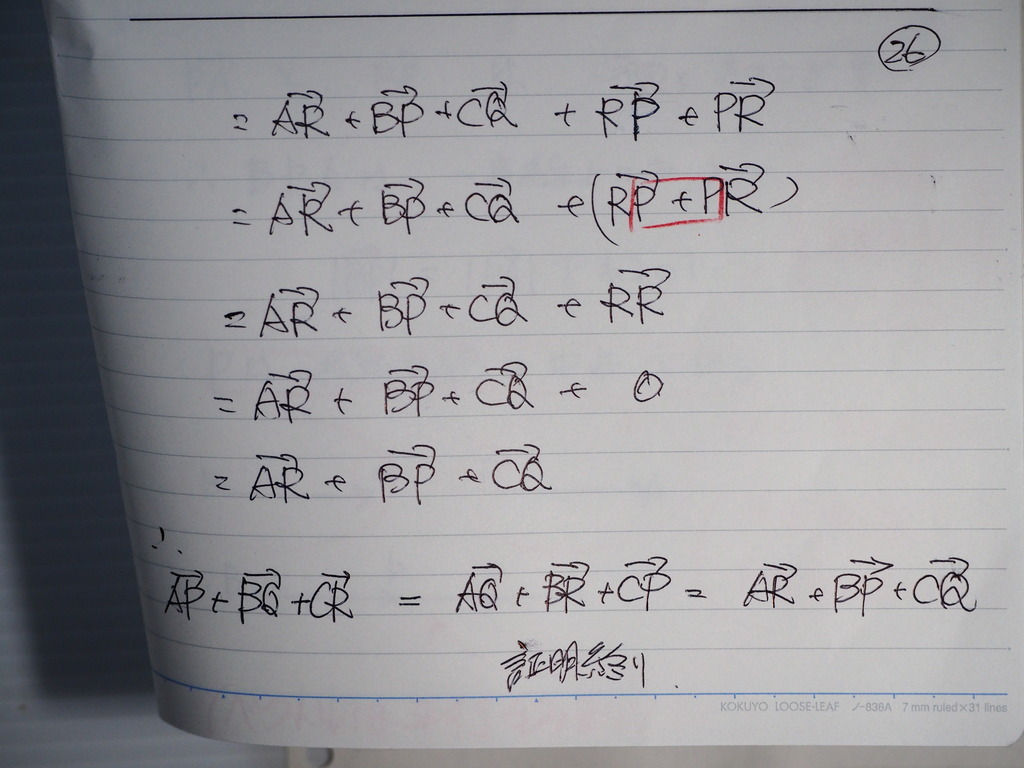 26
= AR→ + BP→ + CQ→ + RP→ + PR→
= AR→ + BP→ + CQ→ + (RP→ + PR→)
= AR→ + BP→ + CQ→ + RR→
= AR→ + BP→ + CQ→ + 0
= AR→ + BP→ + CQ→
∴
AP→ + BQ→ + CR→ = AQ→ + BR→ + CP→ = AR→ + BP→ + CQ→
証明終り.
KOKUYO LOOSE-LEAF ノ-836A 7 mm ruled×31 lines